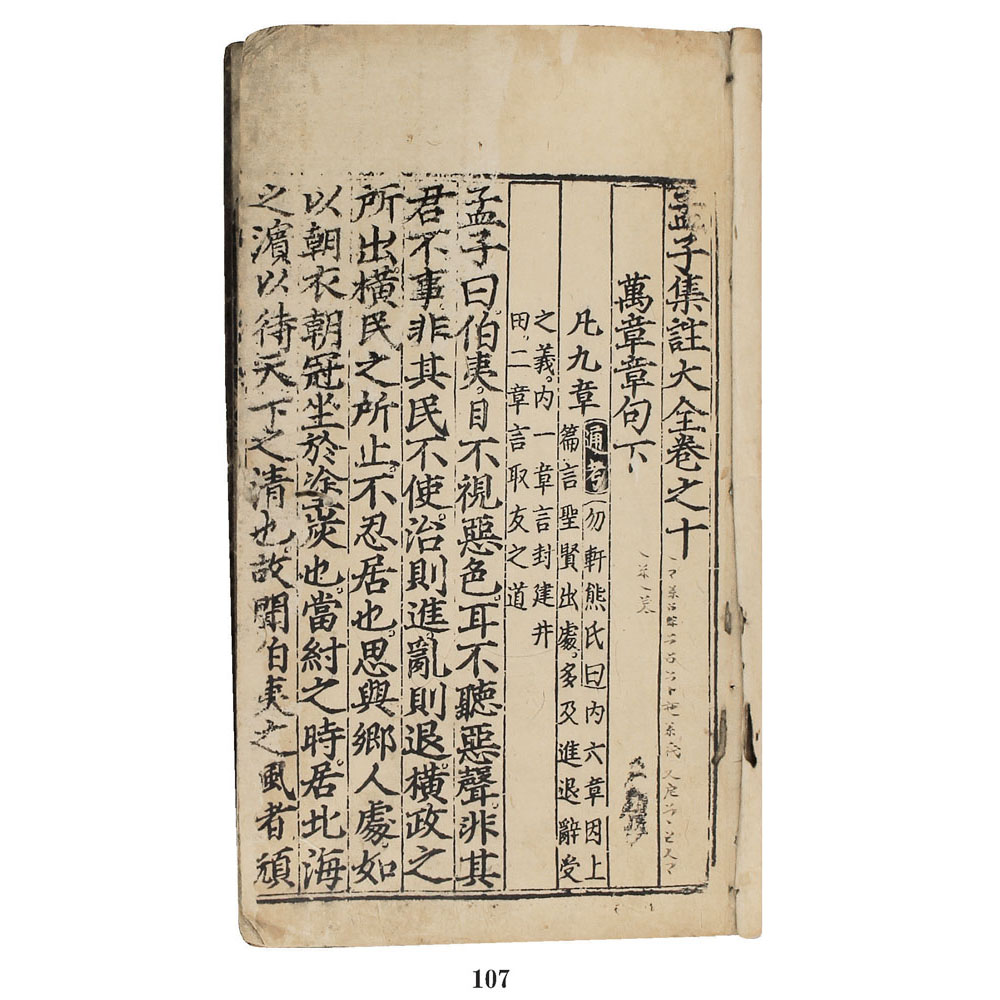 孟子集註大全卷之十
萬章章句下
凡九章 通考 勿軒熊氏曰内六章因上
篇言聖賢出處多及進退辭受
之義内一章言封建井
田二章言取友之道
孟子曰伯夷目不視惡色耳不聽惡聲非其
君不事非其民不使治則進亂則退橫政之
所出橫民之所止不忍居也思與鄉人處如
以朝衣朝冠坐於塗炭也當紂之時居北海
之濱以待天下之清也故聞伯夷之風者頑
107